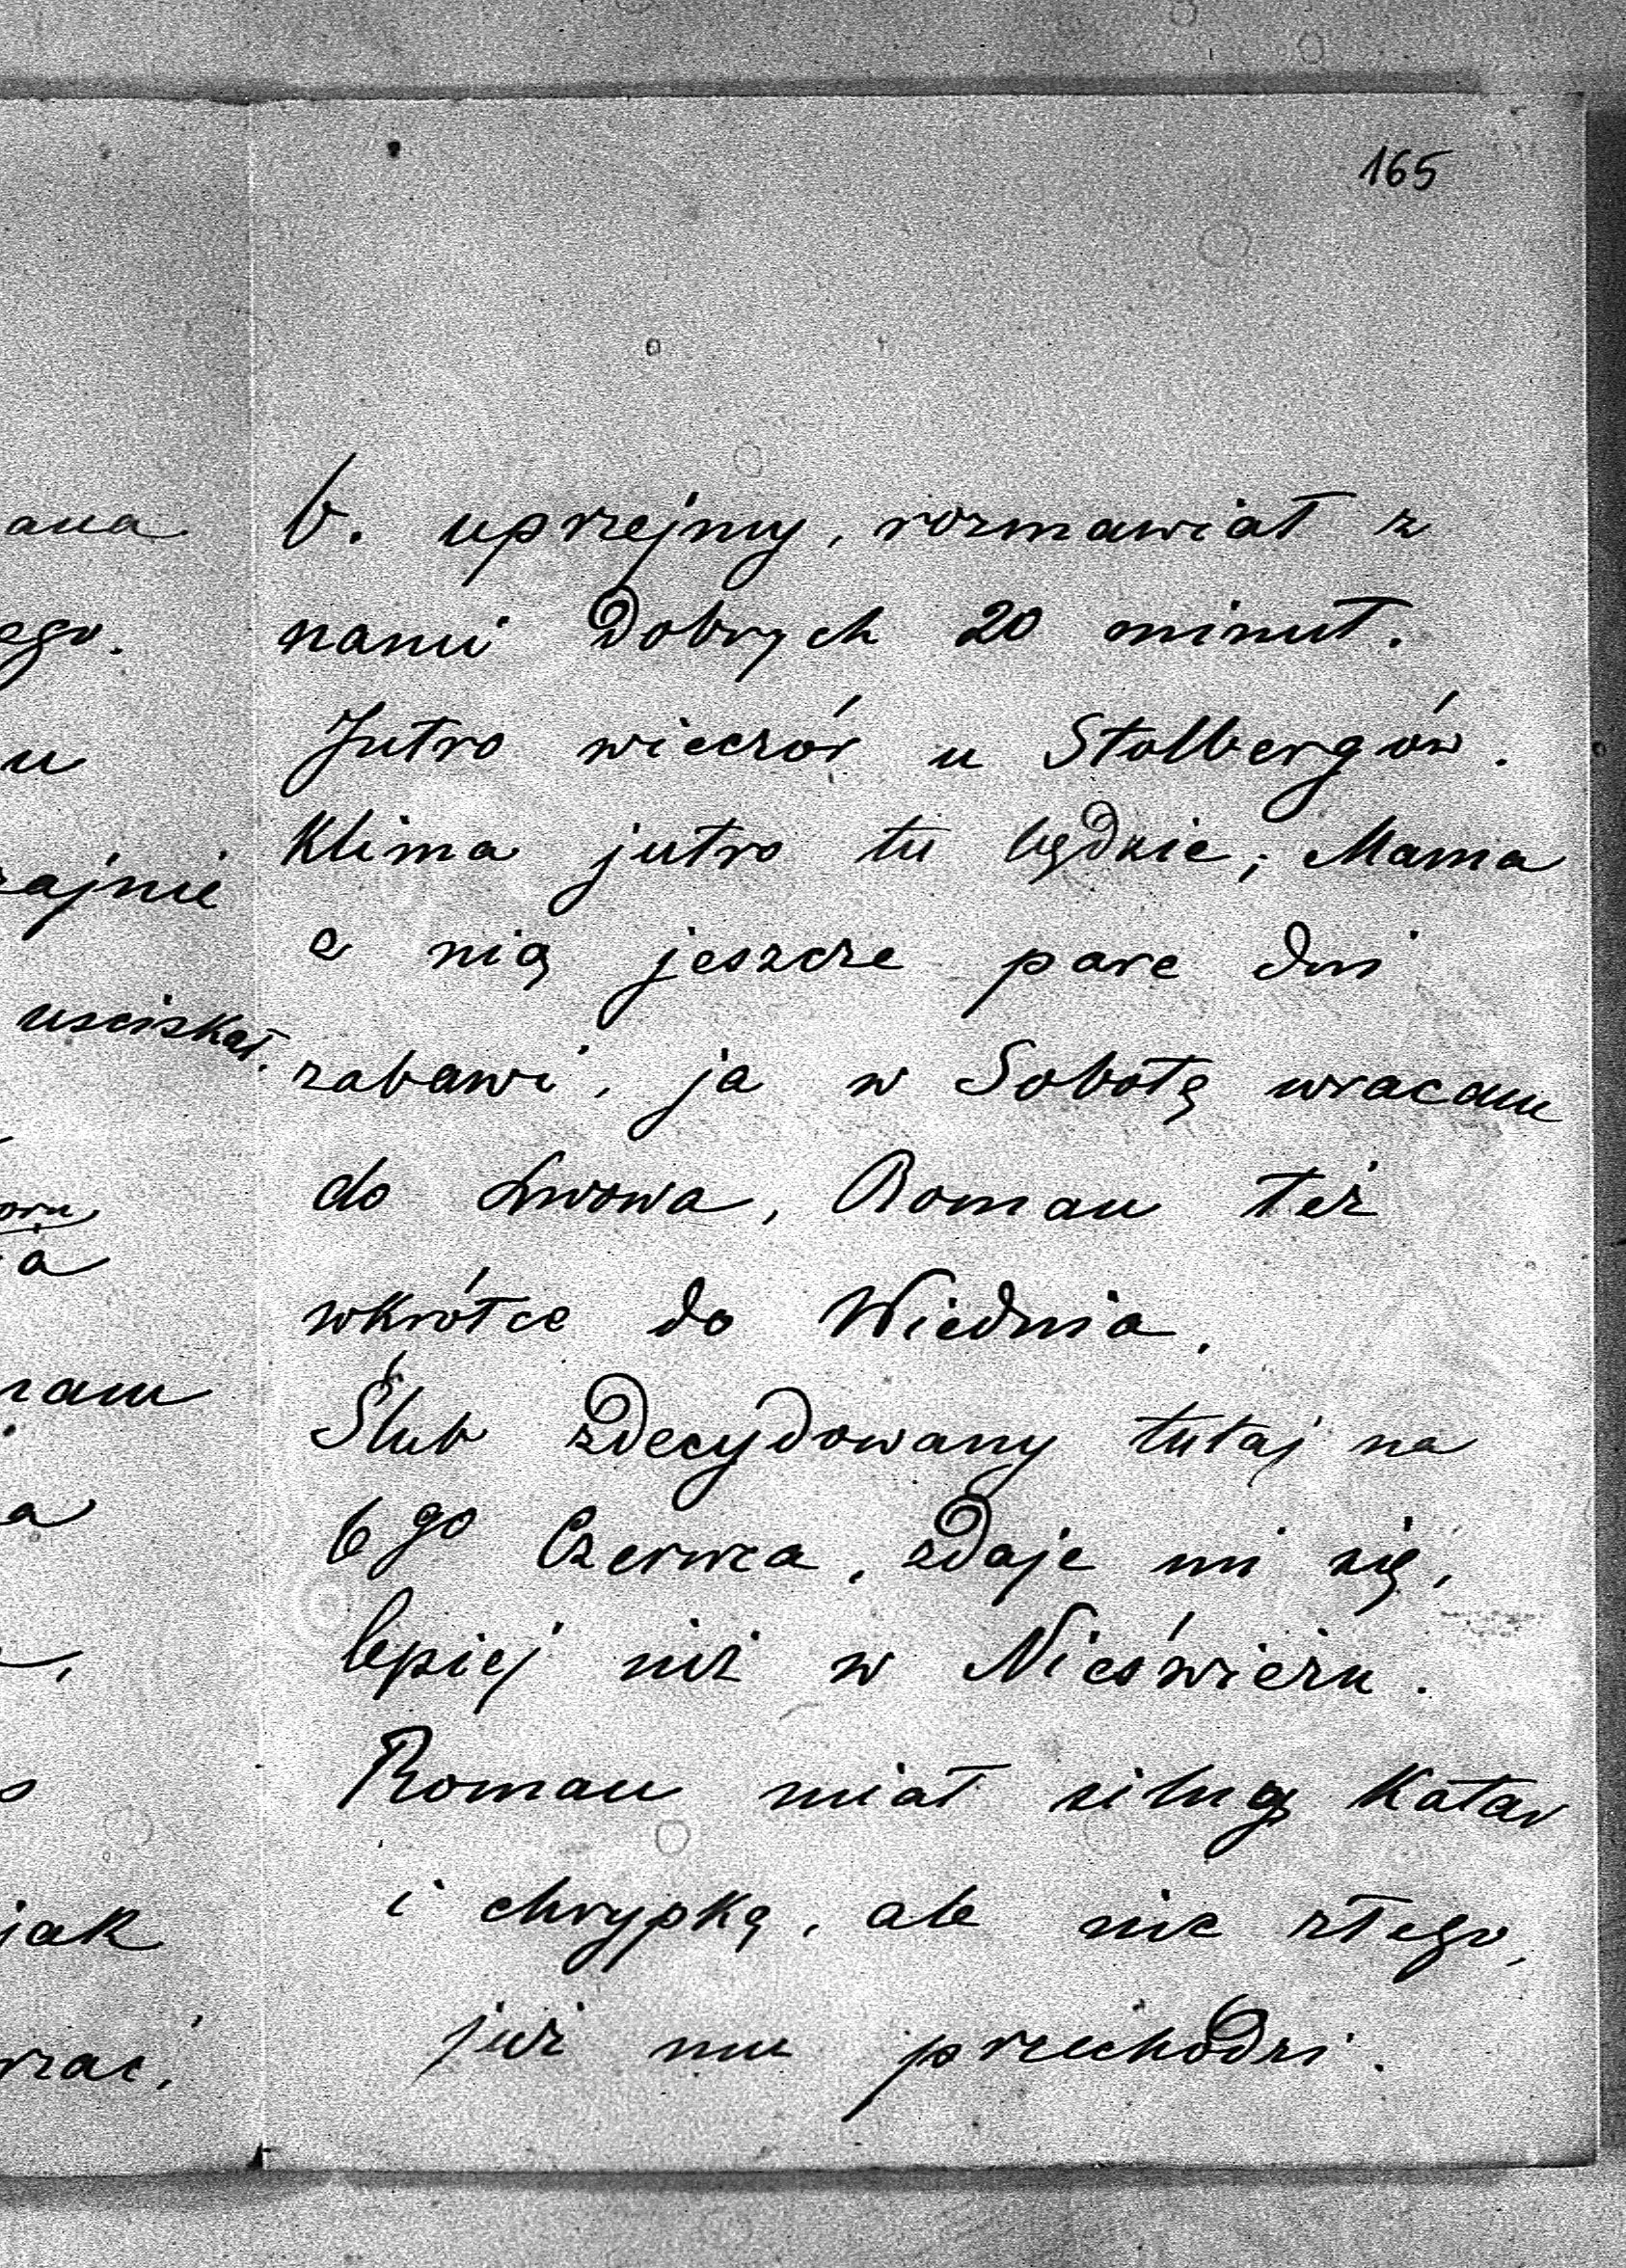 165
b. uprzejmy, rozmawiał z
nami dobrych 20 minut.
Jutro wieczór u Stolbergów.
Klima jutro tu będzie, Mama
z nią jeszcze parę dni
zabawi, ja w Sobotę wracam
do Lwowa, Roman też
wkrótce do Wiednia.
Ślub zdecydowany tutaj na
6go Czerwca, zdaje mi się,
lepiej niż w Nieświeżu.
Roman miał silny Katar
i chrypkę, ale nic złego,
już mu przechodzi.
ego.
u
uściskał.
a
nam
a
jak